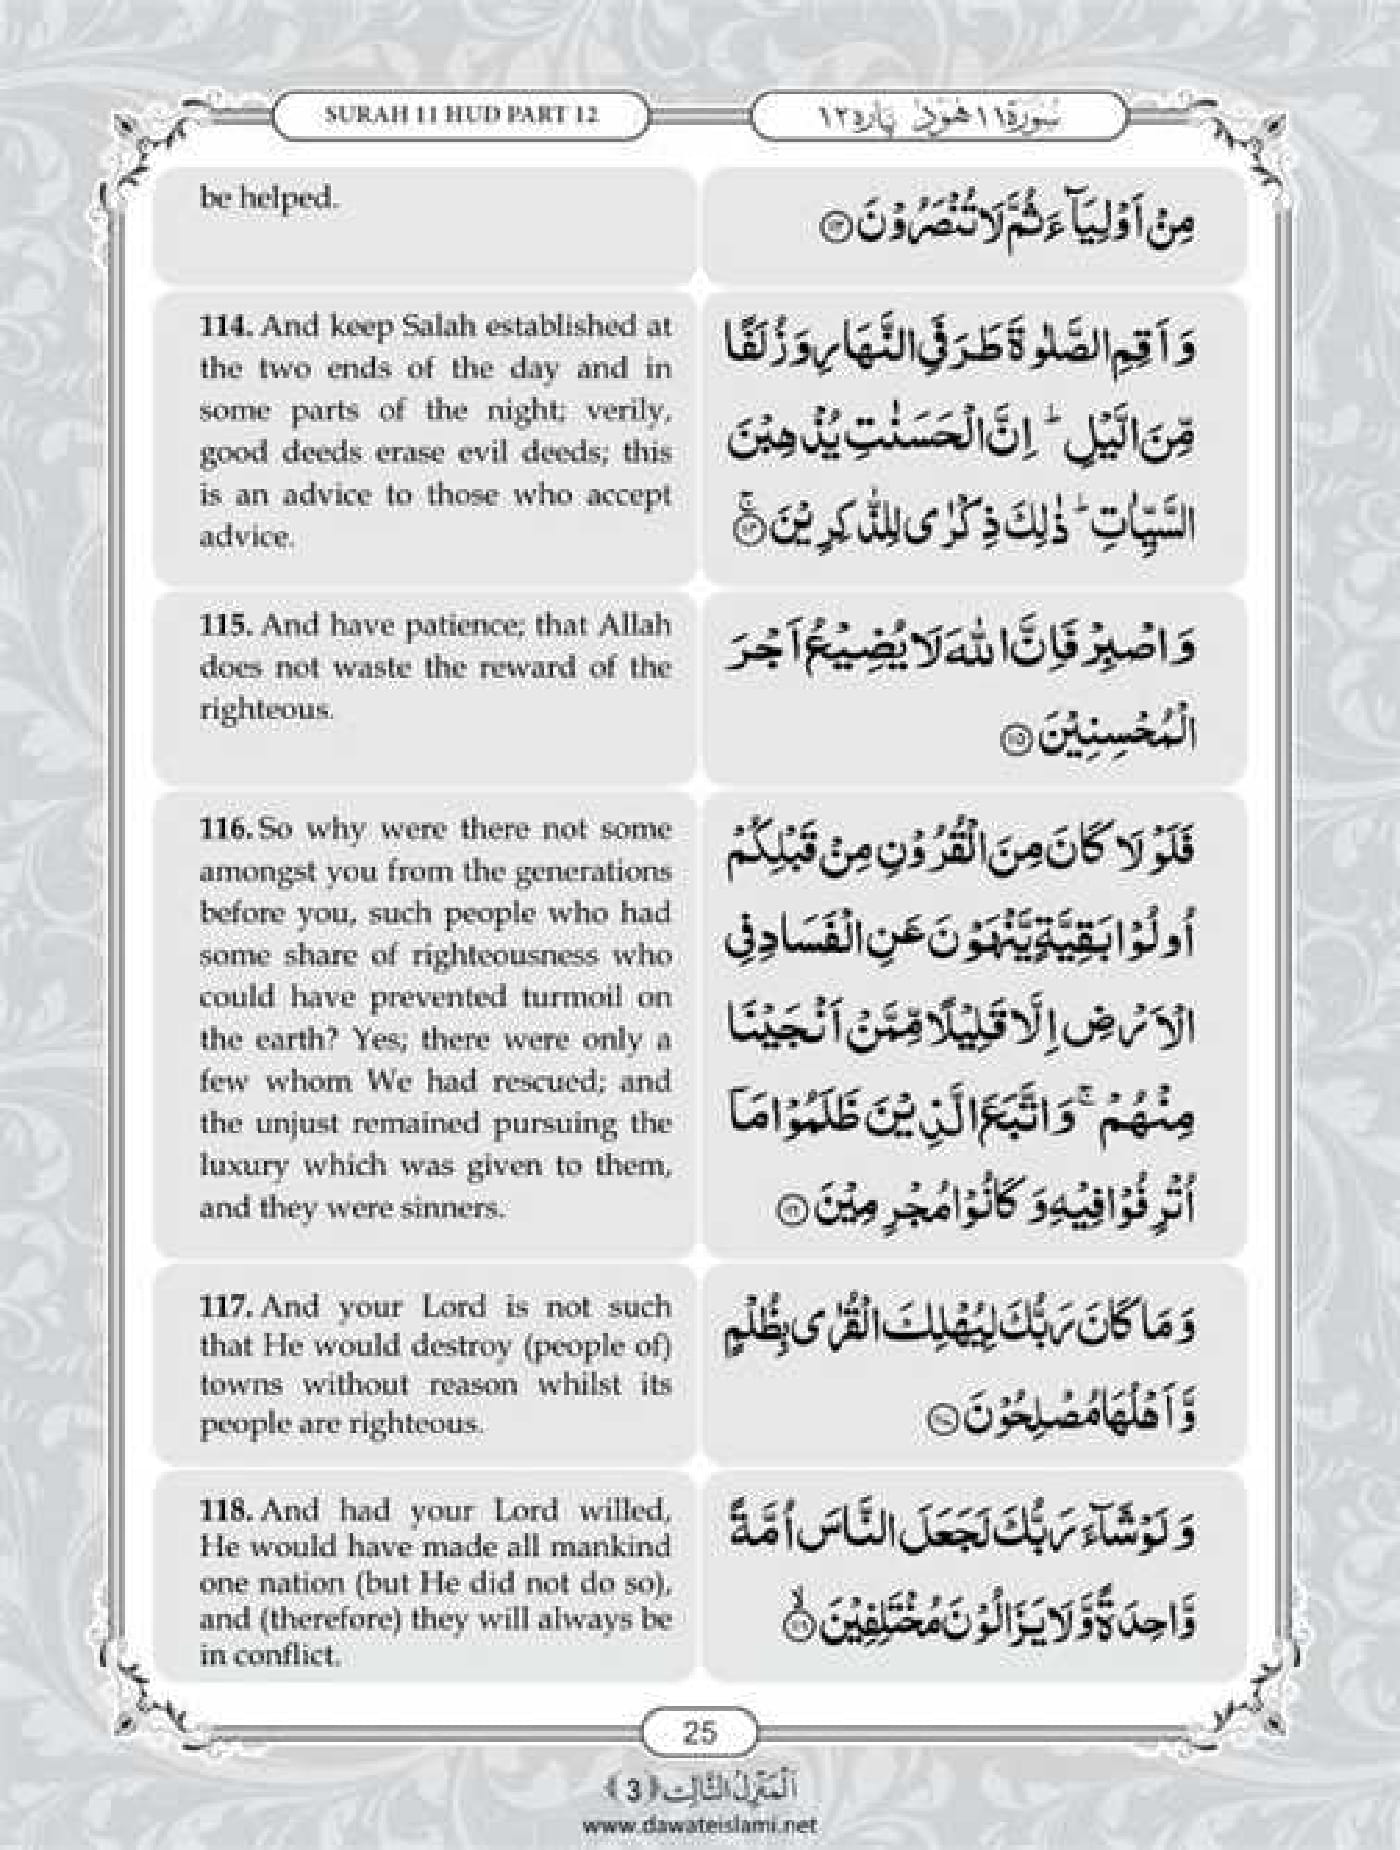 SURAH 11 HUD PART 12
سُوْرَۃ ۱۱ هُوْد پارہ ۱۲
be helped.
مِنْ اَوْلِيَآءَ ثُمَّ لَا تُنْصَرُوْنَ ﴿۱۱۳﴾
114. And keep Salah established at
the two ends of the day and in
some parts of the night; verily,
good deeds erase evil deeds; this
is an advice to those who accept
advice.
وَ اَقِمِ الصَّلٰوةَ طَرَفَيِ النَّهَارِ وَ زُلَفًا
مِّنَ الَّيْلِ ؕ اِنَّ الْحَسَنٰتِ يُذْهِبْنَ
السَّيِّاٰتِ ؕ ذٰلِكَ ذِكْرٰى لِلذّٰكِرِيْنَ ۚ﴿۱۱۴﴾
115. And have patience; that Allah
does not waste the reward of the
righteous.
وَ اصْبِرْ فَاِنَّ اللهَ لَا يُضِيْعُ اَجْرَ
الْمُحْسِنِيْنَ ﴿۱۱۵﴾
116. So why were there not some
amongst you from the generations
before you, such people who had
some share of righteousness who
could have prevented turmoil on
the earth? Yes; there were only a
few whom We had rescued; and
the unjust remained pursuing the
luxury which was given to them,
and they were sinners.
فَلَوْ لَا كَانَ مِنَ الْقُرُوْنِ مِنْ قَبْلِكُمْ
اُولُوْا بَقِيَّةٍ يَّنْهَوْنَ عَنِ الْفَسَادِ فِي
الْاَرْضِ اِلَّا قَلِيْلًا مِّمَّنْ اَنْجَيْنَا
مِنْهُمْ ۚ وَ اتَّبَعَ الَّذِيْنَ ظَلَمُوْا مَاۤ
اُتْرِفُوْا فِيْهِ وَ كَانُوْا مُجْرِمِيْنَ ﴿۱۱۶﴾
117. And your Lord is not such
that He would destroy (people of)
towns without reason whilst its
people are righteous.
وَ مَا كَانَ رَبُّكَ لِيُهْلِكَ الْقُرٰى بِظُلْمٍ
وَّ اَهْلُهَا مُصْلِحُوْنَ ﴿۱۱۷﴾
118. And had your Lord willed,
He would have made all mankind
one nation (but He did not do so),
and (therefore) they will always be
in conflict.
وَ لَوْ شَآءَ رَبُّكَ لَجَعَلَ النَّاسَ اُمَّةً
وَّاحِدَةً وَّ لَا يَزَالُوْنَ مُخْتَلِفِيْنَ ۙ﴿۱۱۸﴾
25
اَلْمَنْزِلُ الثَّالِث ﴿3﴾
www.dawateislami.net